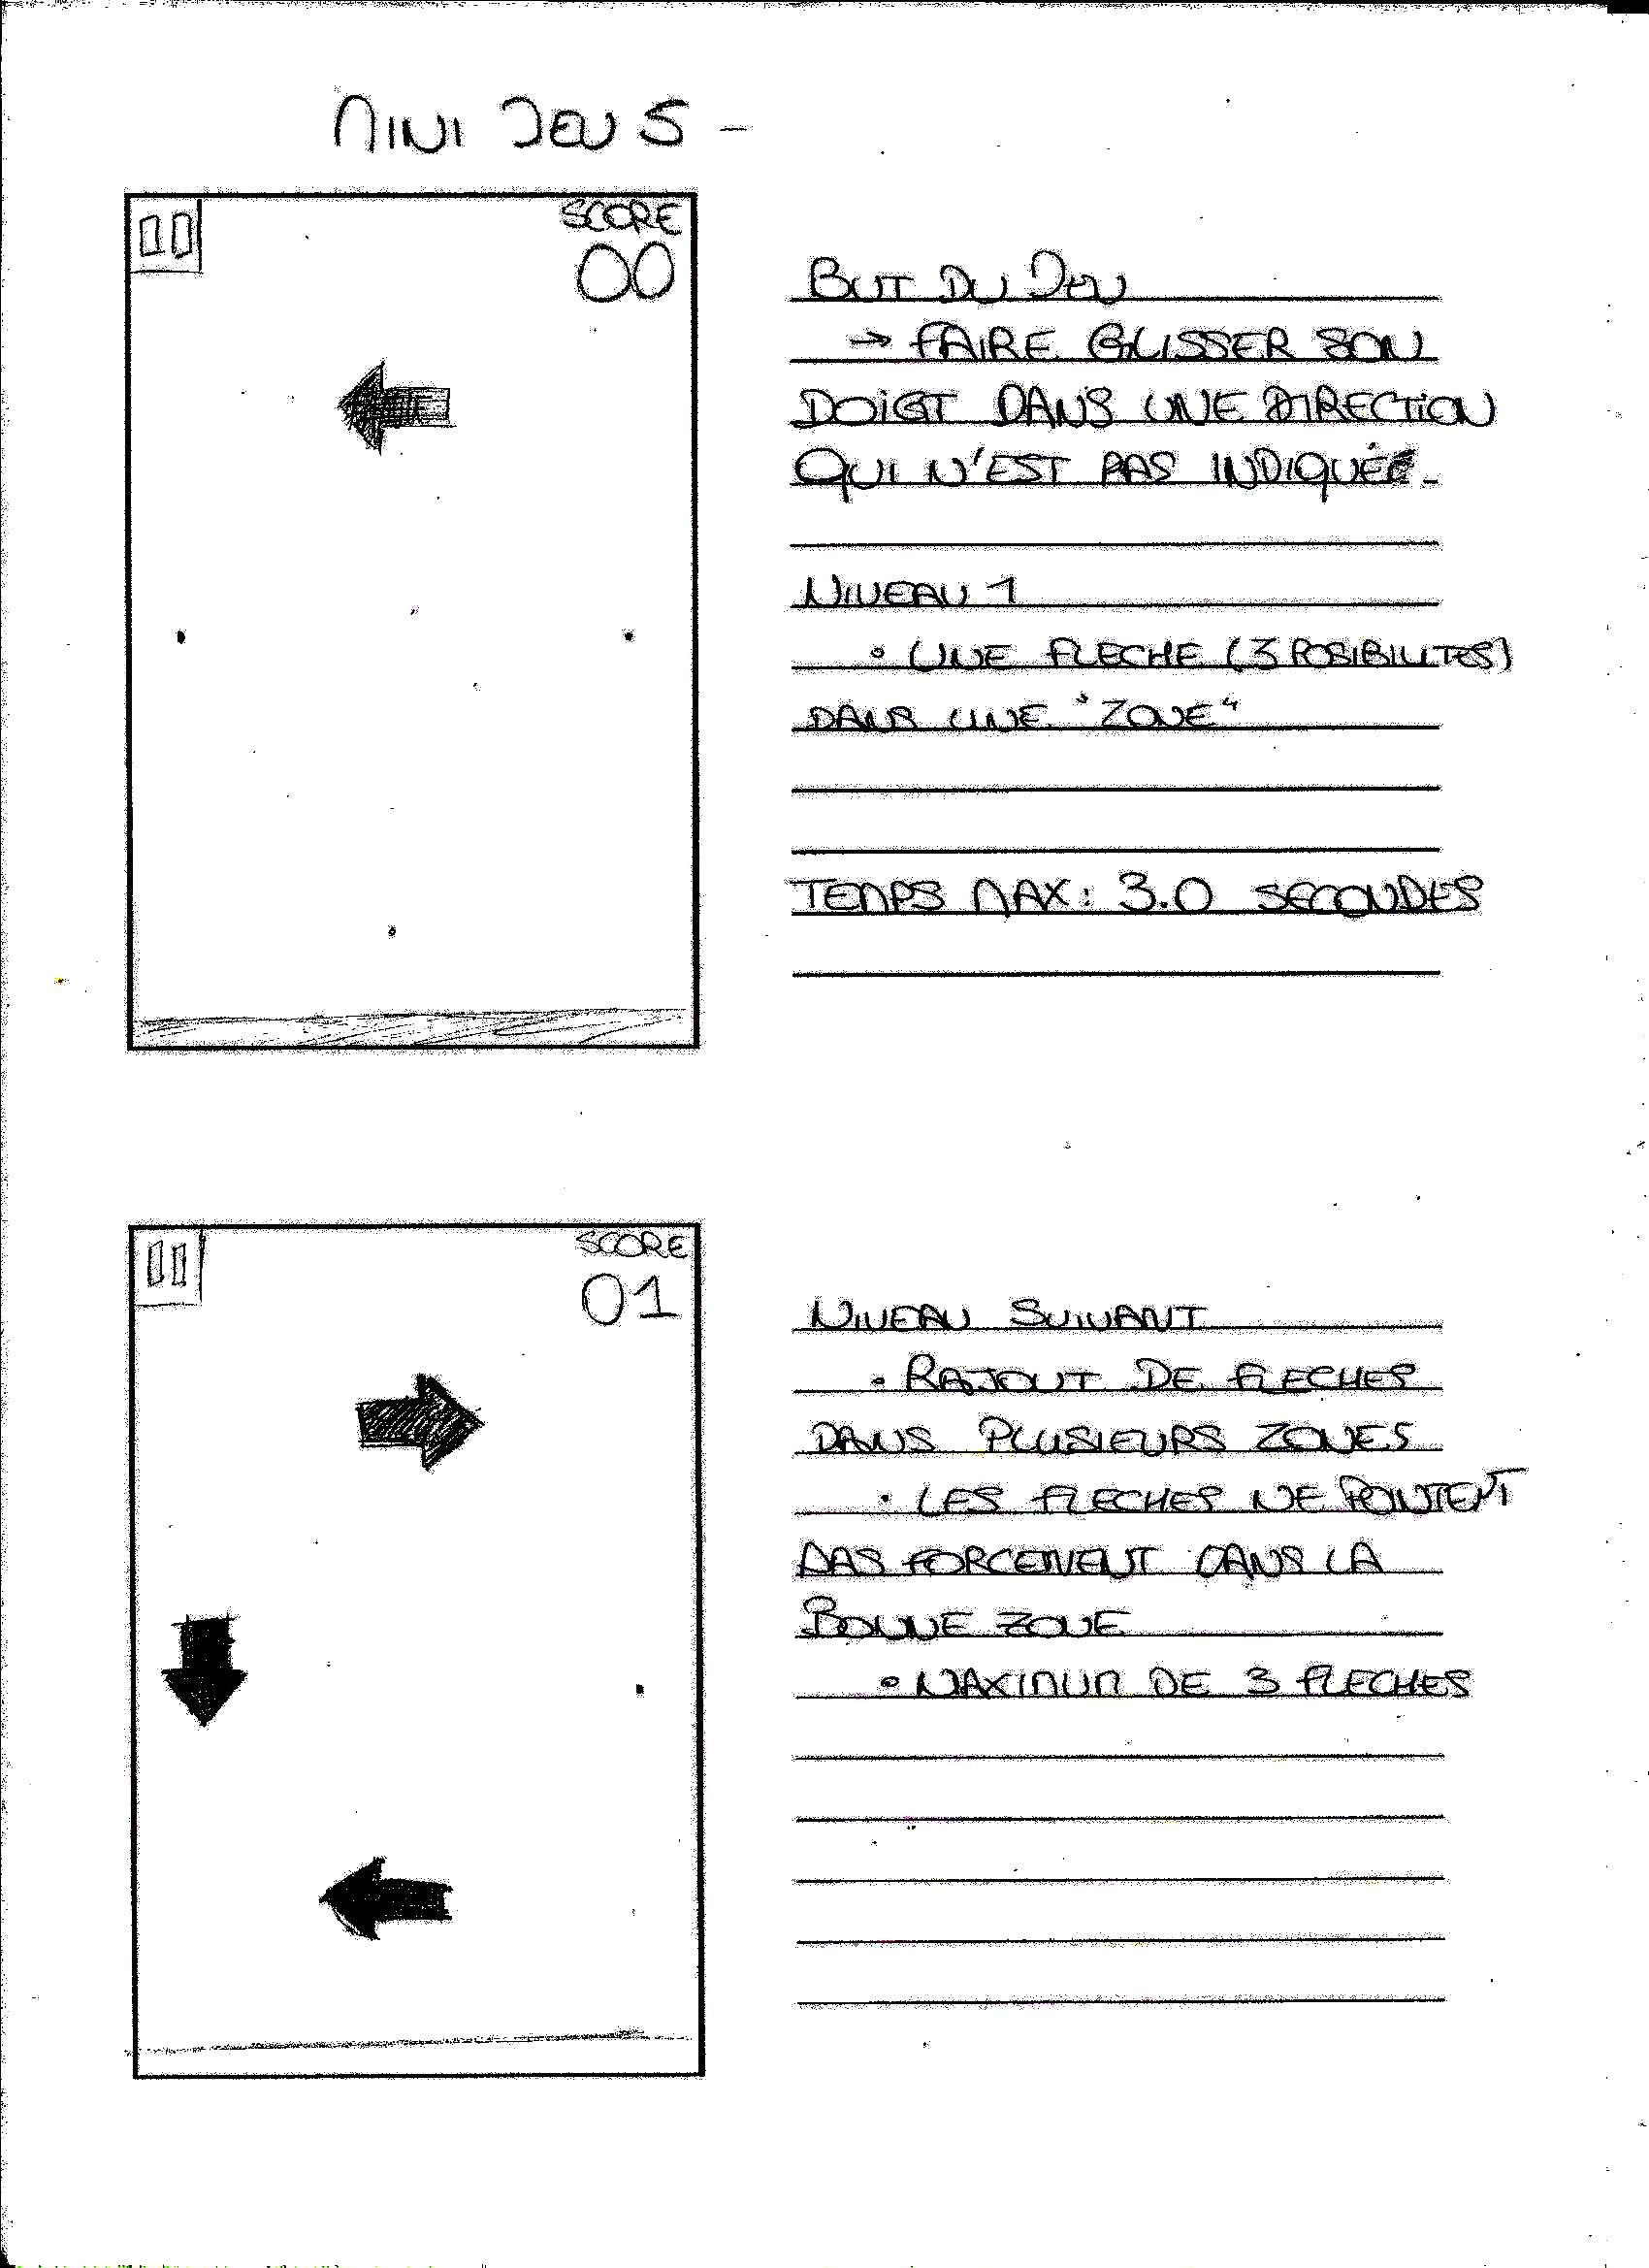 MINI JEU 5 -
SCORE
00
BUT DU JEU
→ FAIRE GLISSER SON
DOIGT DANS UNE DIRECTION
QUI N'EST PAS INDIQUÉE.
NIVEAU 1
• UNE FLECHE (3 POSIBILITES)
DANS UNE "ZONE"
TEMPS MAX: 3.0 SECONDES
SCORE
01
NIVEAU SUIVANT
• RAJOUT DE FLECHES
DANS PLUSIEURS ZONES
• LES FLECHES NE POINTENT
PAS FORCEMENT DANS LA
BONNE ZONE
• MAXIMUM DE 3 FLECHES